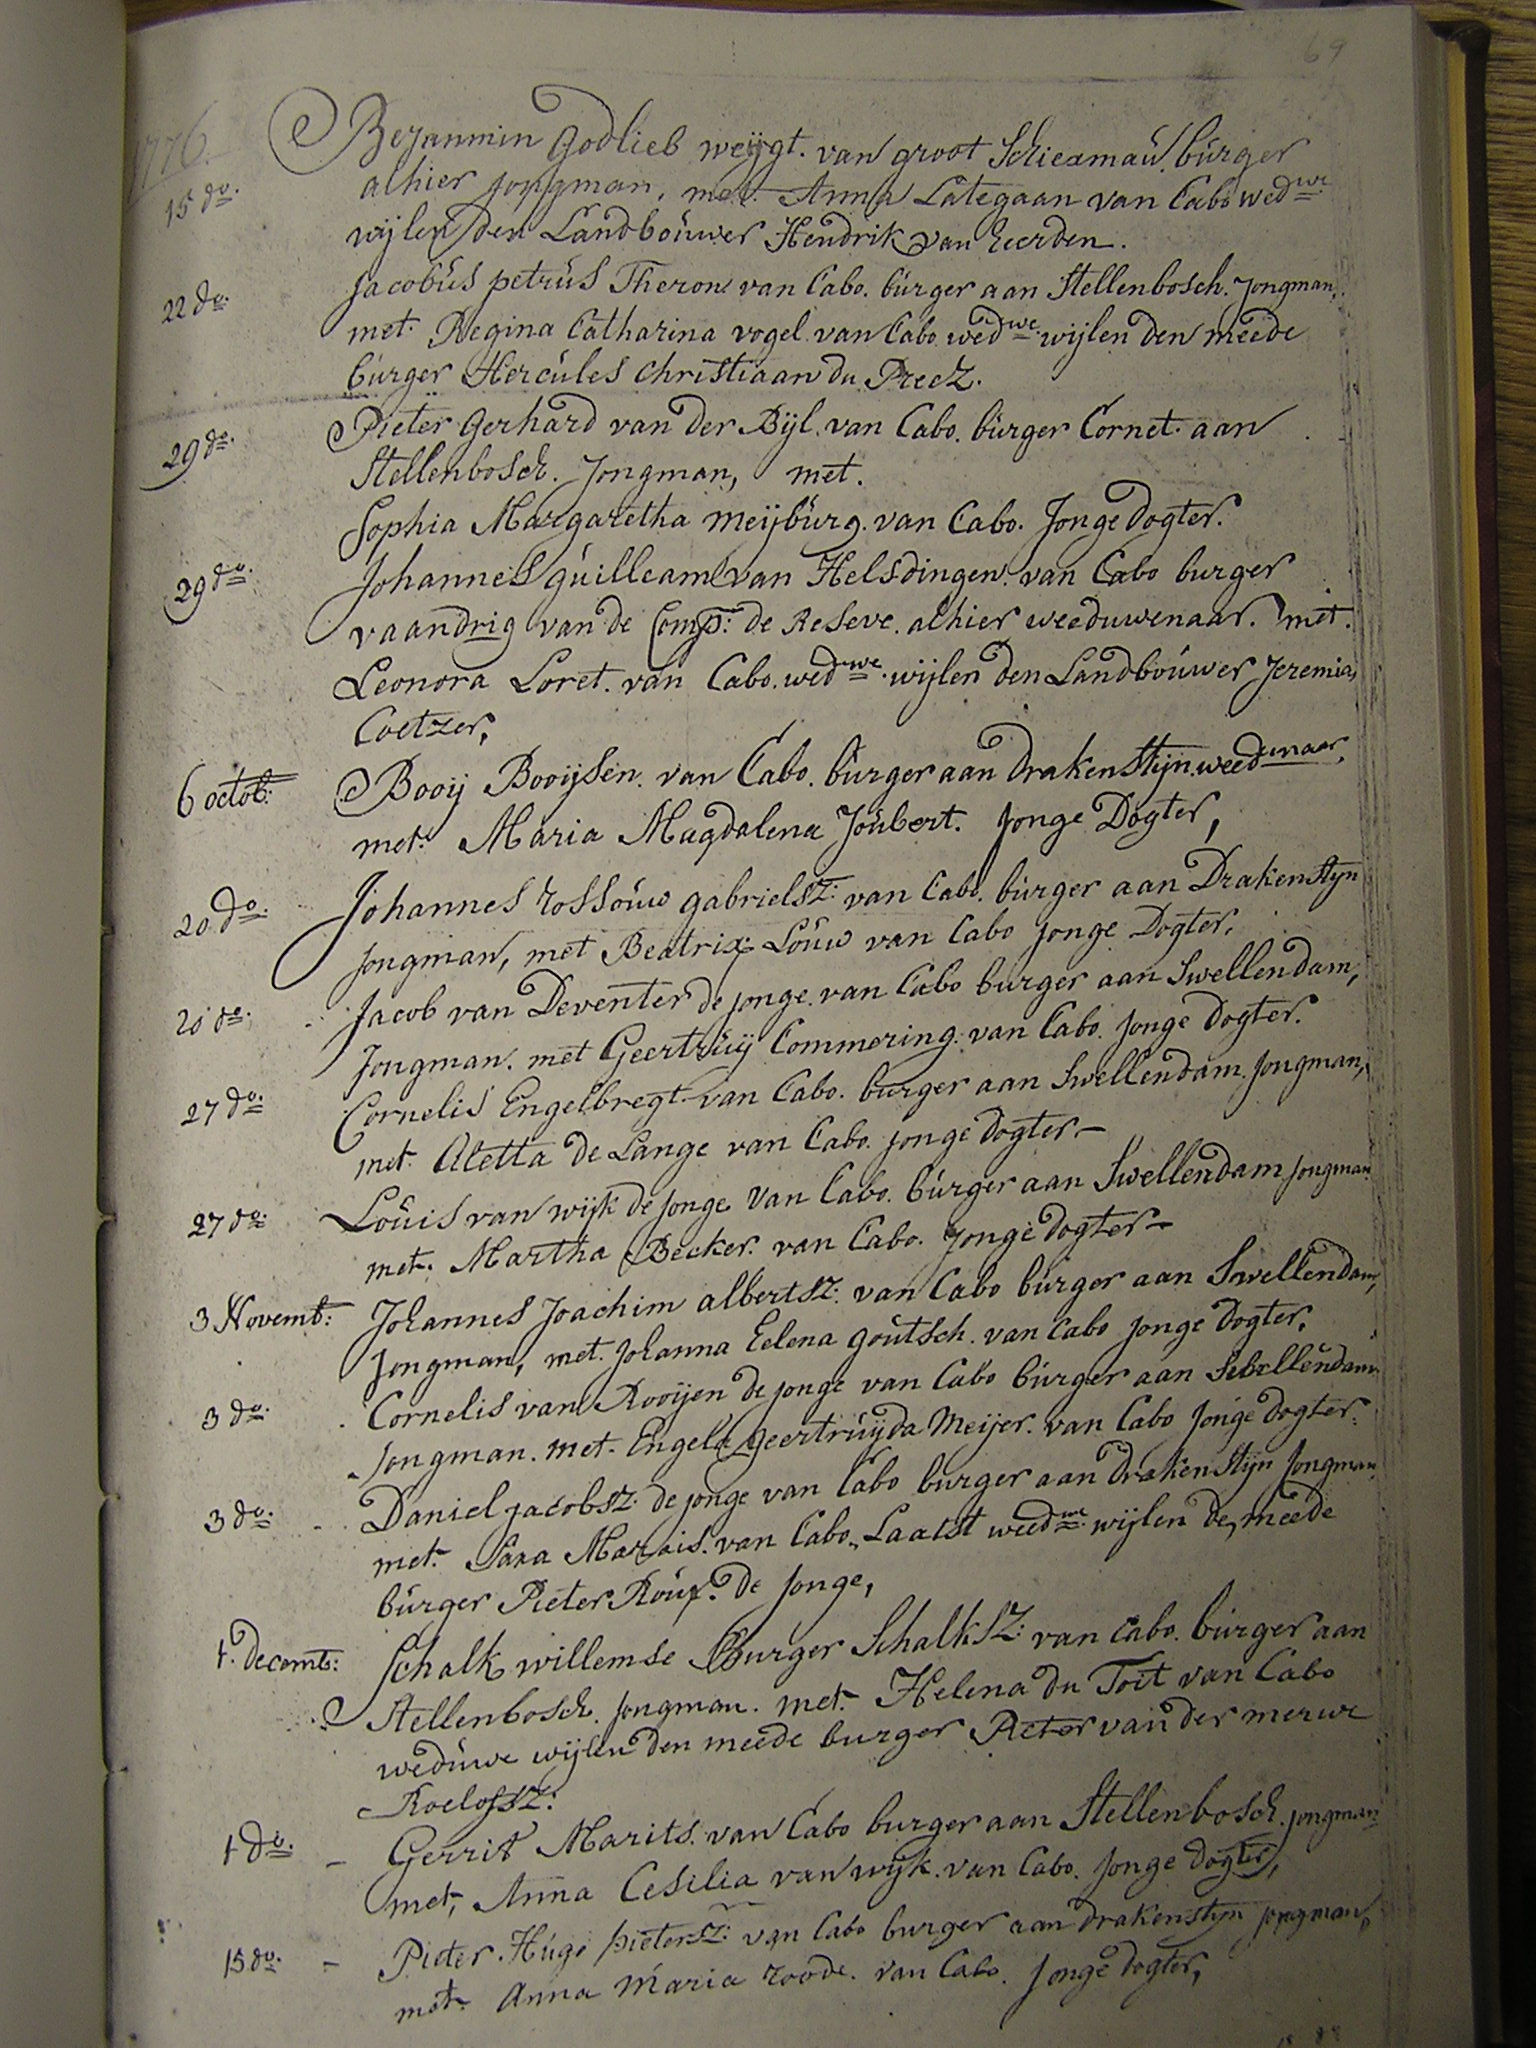 69
1776.
Bejanmin Godlieb weijgt. van groot Schiexmaú. búrger
15 do. alhier jongman, met. Anna Lategaan van Cabo wedwe.
wijlen den Landboúwer Hendrik van heerden.
22 do. Jacobús petrús Theron van Cabo. búrger aan Stellenbosch. Jongman,
met. Regina Catharina vogel van Cabo wedwe. wijlen den meede
búrger Hercúles Christiaan du Preez.
29 do. Pieter Gerhard van der Bijl. van Cabo. búrger Cornet. aan
Stellenbosch. Jongman, met.
Sophia Margaretha meijbúrg. van Cabo. Jonge Dogter.
29 do. Johannes gúilleam van Helsdingen. van Cabo burger
vaandrig van de Comp: de Reseve. alhier weeduwenaar. met.
Leonora Loret. van Cabo. wedwe. wijlen den Landboúwer Jeremia,
Coetzer,
6 octob: Booij Booijsen. van Cabo. búrger aan drakenstijn weednaar,
met. Maria Magdalena Joúbert. Jonge Dogter,
20 do. Johannes rossoúw gabrielsz: van Cabo. búrger aan Drakenstyn
Jongman, met Beatrix Loúw van Cabo jonge Dogter,
20 do. Jacob van Deventer de jonge. van Cabo burger aan Swellendam,
Jongman. met Geertrúij Commering. van Cabo. jonge Dogter.
27 do. Cornelis Engelbregt. van Cabo. burger aan Swellendam. Jongman,
met. Aletta de Lange van Cabo. jonge dogter -
27 do: Loúis van wijk de jonge van Cabo. búrger aan Swellendam Jongman
met. Martha Becker. van Cabo. jonge dogter -
3 Novemb: Johannes Joachim albertsz: van Cabo búrger aan Swellendam,
Jongman, met. Johanna Eelena goutsch. van Cabo jonge Dogter,
3 do. Cornelis van Rooijen de jonge van Cabo búrger aan Swellendam
Jongman. met. Engela Geertrúijda Meijer. van Cabo jonge dogter.
3 do. Daniel jacobsz: de jonge van Cabo burger aan drakenstijn Jongman
met. Sara Marais. van Cabo. Laatst weedwe. wijlen de meede
búrger Pieter Roúx. de jonge,
1. decemb: Schalk willemse Burger Schalksz: van Cabo. búrger aan
Stellenbosch. jongman. met. Helena du Toit van Cabo
wedúwe wijlen den meede burger Pieter van der merwe
Roelofsz:
1 do. - Gerrit Marits. van Cabo burger aan Stellenbosch. jongman
met, Anna Cesilia van wijk. van Cabo. jonge dogter,
15 do. - Pieter Húgo pietersz: van Cabo burger aan drakenstyn jongman,
met. Anna Maria roode. van Cabo. jonge dogter,